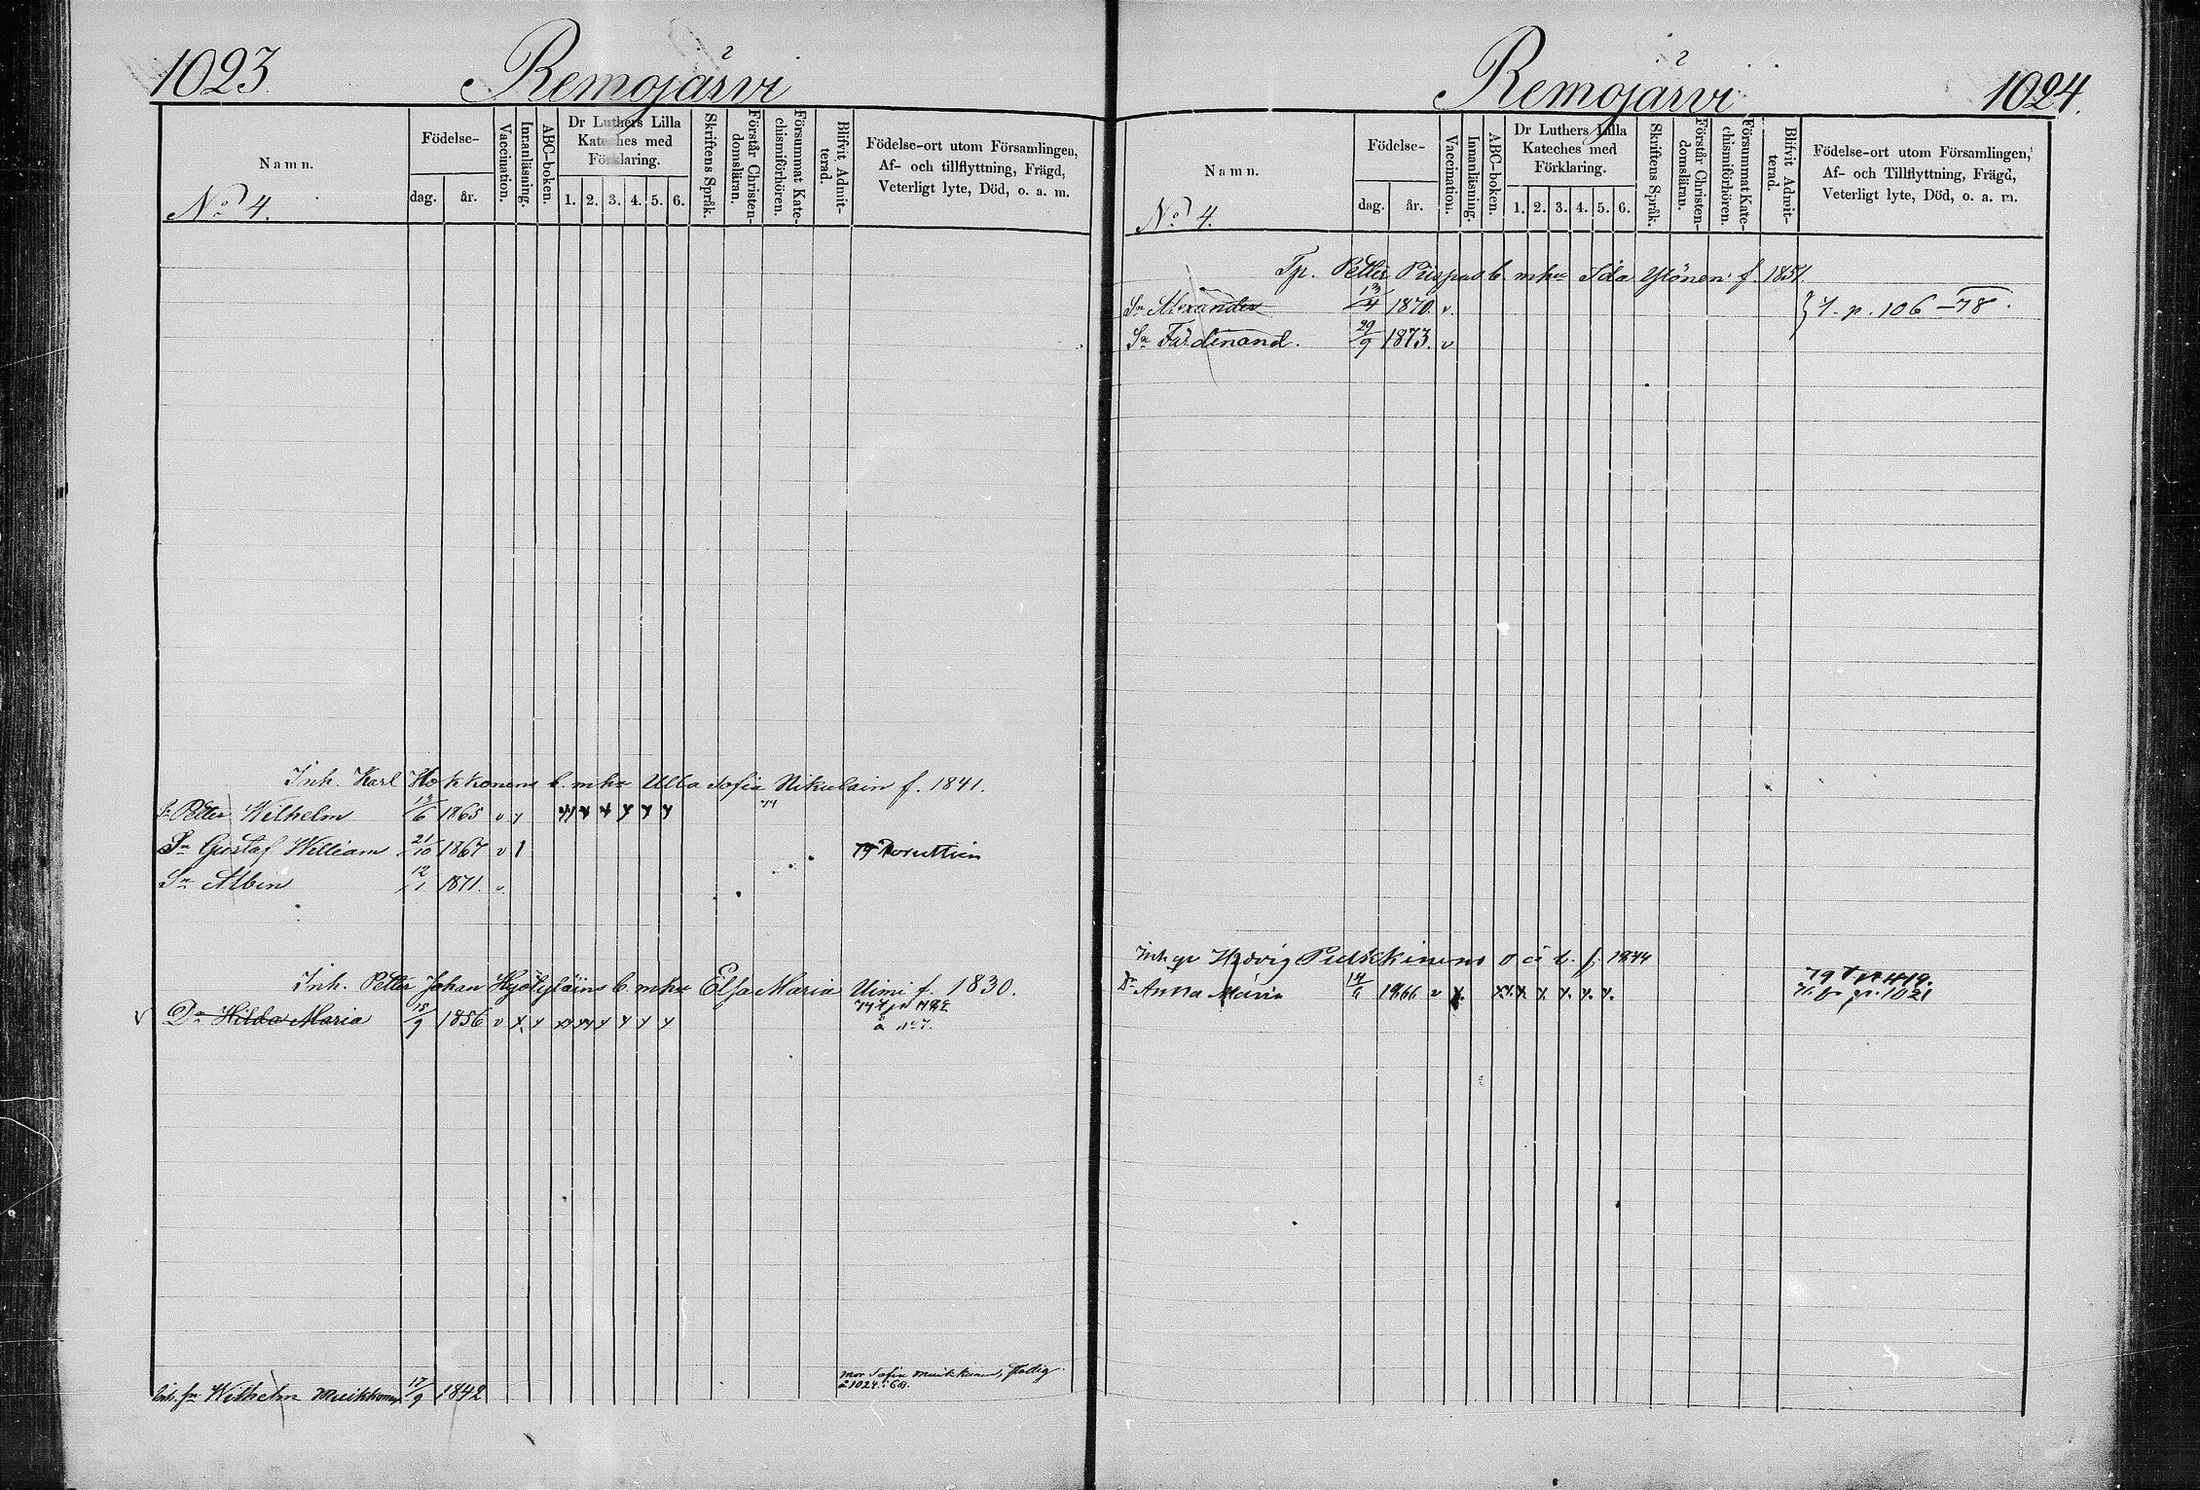 1023.
Remojärvi
Namn.
Födelse-
dag.
år.
Vaccination.
Innanläsning.
ABC-boken.
Dr Luthers Lilla
Kateches med
Förklaring.
1. 2. 3. 4. 5. 6.
Skriftens Språk.
Förstår Christen-
domsläran.
Försummat Kate-
chismiförhören.
Blifvit Admit-
terad.
Födelse-ort utom Församlingen,
Af- och tillflyttning, Frägd,
Veterligt lyte, Död, o. a. m.
No 4.
Inh. Karl Hokkonens b. m. hu Ulla Sofia Nikulain f. 1841.
Sn Petter Wilhelm 13/6 1865 v
Sn Gustaf William 21/10 1867 v
Sn Albin 12/1 1871. v
Inh. Petter Johan b. m. hu Elsa Maria Uimi f. 1830.
Dr Hilda Maria 18/9 1856 v x x
å no 7.
mor Sofia Muikkunen,
å 1024. 68.
Wilhelm 17/9 1842
Remojärvi
1024.
Namn.
Födelse-
dag.
år.
Vaccination.
Innanläsning.
ABC-boken.
Dr Luthers Lilla
Kateches med
Förklaring.
1. 2. 3. 4. 5. 6.
Skriftens Språk.
Förstår Christen-
domsläran.
Försummat Kate-
chismiförhören.
Blifvit Admit-
terad.
Födelse-ort utom Församlingen,
Af- och Tillflyttning, Frägd,
Veterligt lyte, Död, o. a. m.
No 4.
Tp. Petter b. m. hu Ida Ylönen f. 1851.
Sn Alexander 13/4 1870. v.
} t. p. 106 – 78.
Sn Färdinand. 29/9 1873. v
Hedvig o ä b. f. 1844
Dr Anna Maria 14/6 1866 v x.
p. 1021